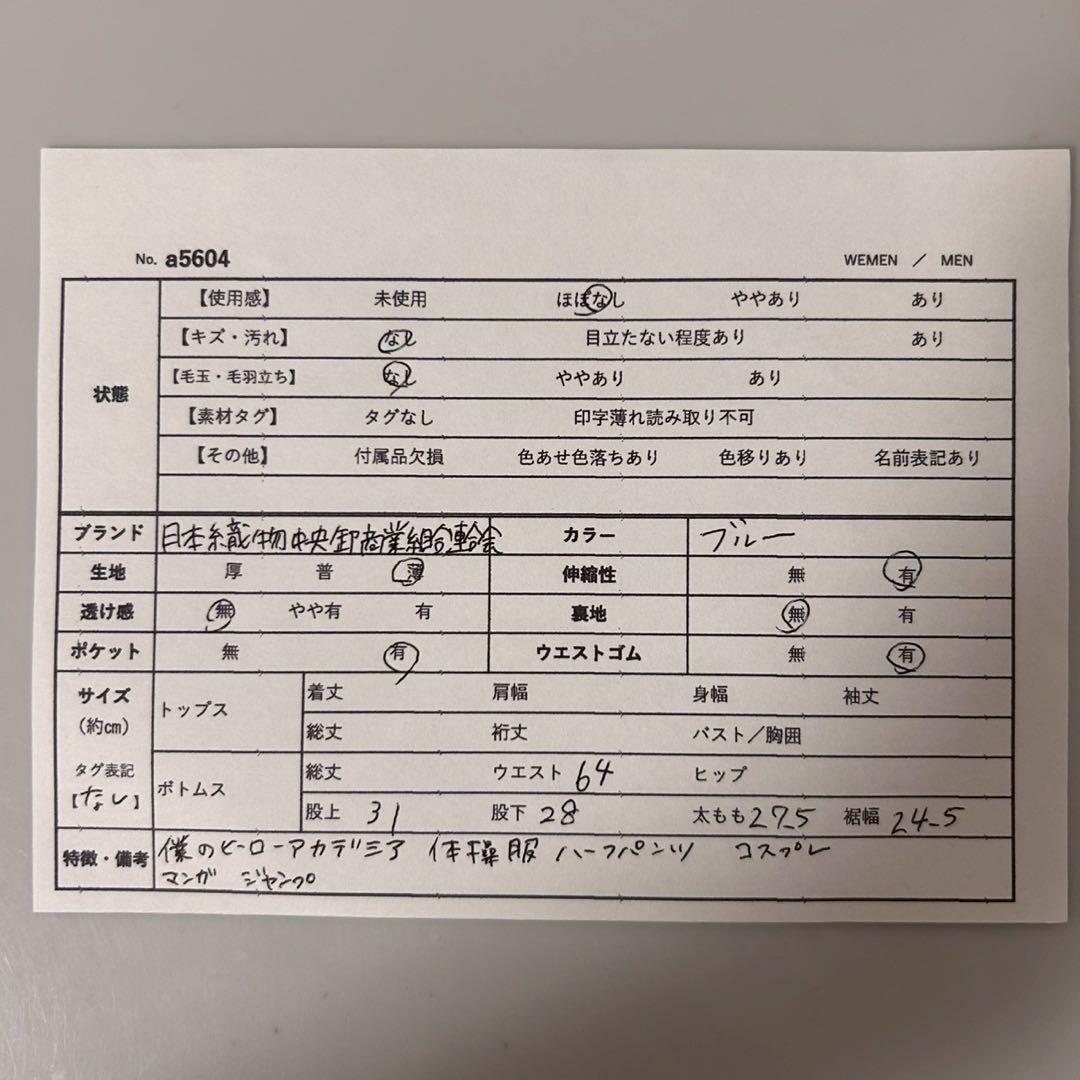 No. a5604 WEMEN / MEN
状態
【使用感】 未使用 ほぼなし ややあり あり
【キズ・汚れ】 なし 目立たない程度あり あり
【毛玉・毛羽立ち】 なし ややあり あり
【素材タグ】 タグなし 印字薄れ読み取り不可
【その他】 付属品欠損 色あせ色落ちあり 色移りあり 名前表記あり
ブランド 日本織物中央卸商業組合連合会 カラー ブルー
生地 厚 普 薄 伸縮性 無 有
透け感 無 やや有 有 裏地 無 有
ポケット 無 有 ウエストゴム 無 有
サイズ
(約cm)
タグ表記
【なし】
トップス
着丈 肩幅 身幅 袖丈
総丈 裄丈 バスト/胸囲
ボトムス
総丈 ウエスト 64 ヒップ
股上 31 股下 28 太もも 27.5 裾幅 24.5
特徴・備考 僕のヒーローアカデミア 体操服 ハーフパンツ コスプレ
マンガ ジャンプ